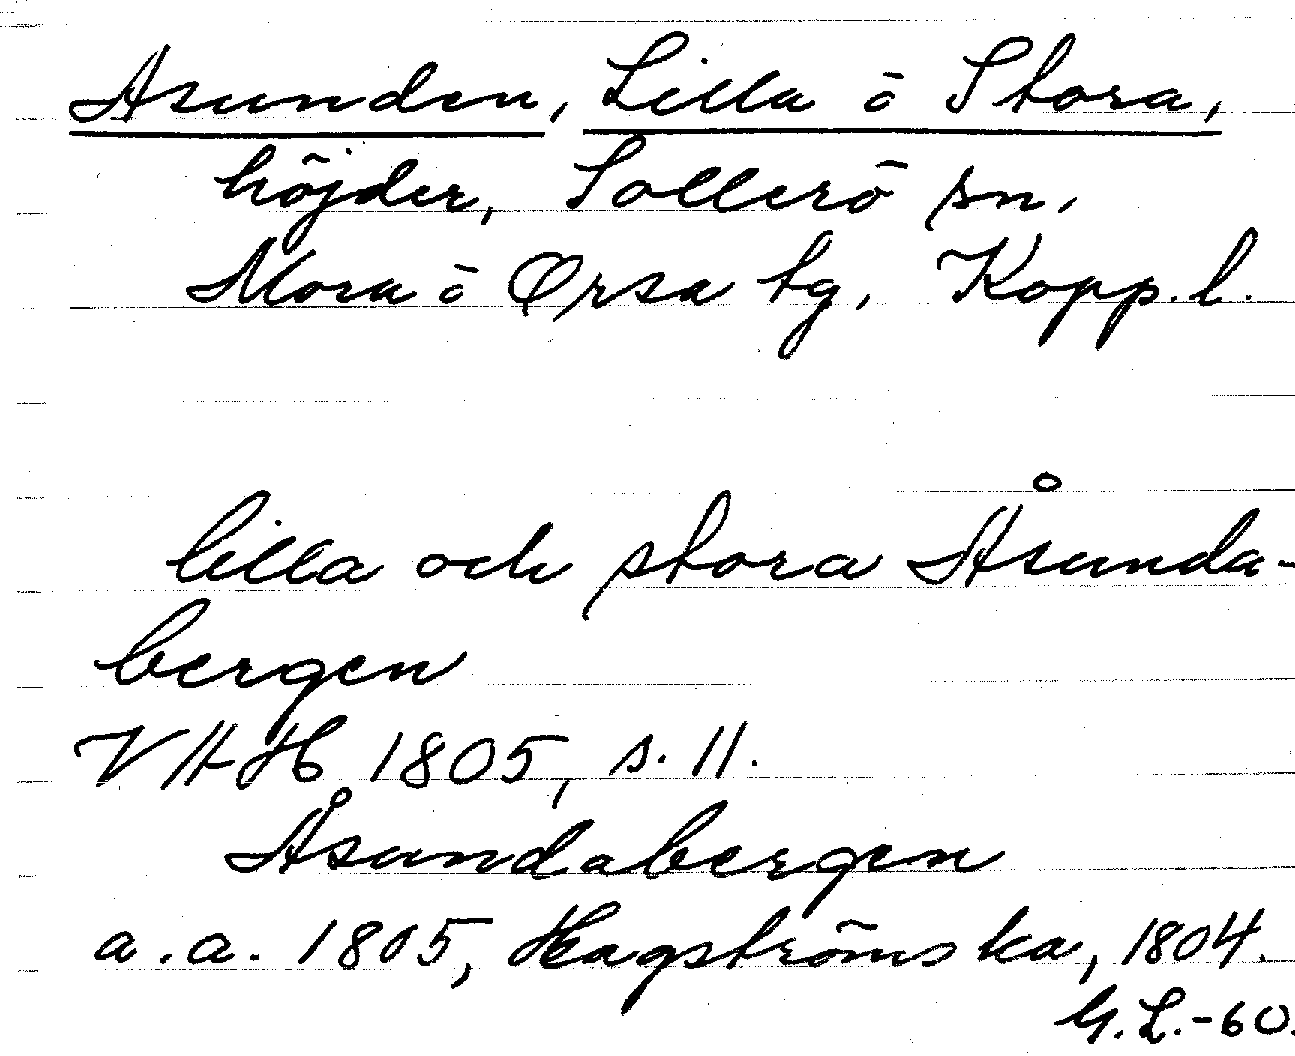 Asunden, Lilla o Stora,
höjder, Sollerö sn,
Mora o Orsa tg, Kopp. l.
lilla och stora Åsunda-
bergen
VHH 1805, s. 11.
Åsundabergen
a. a. 1805, Hagströmska, 1804.
G. L. -60.